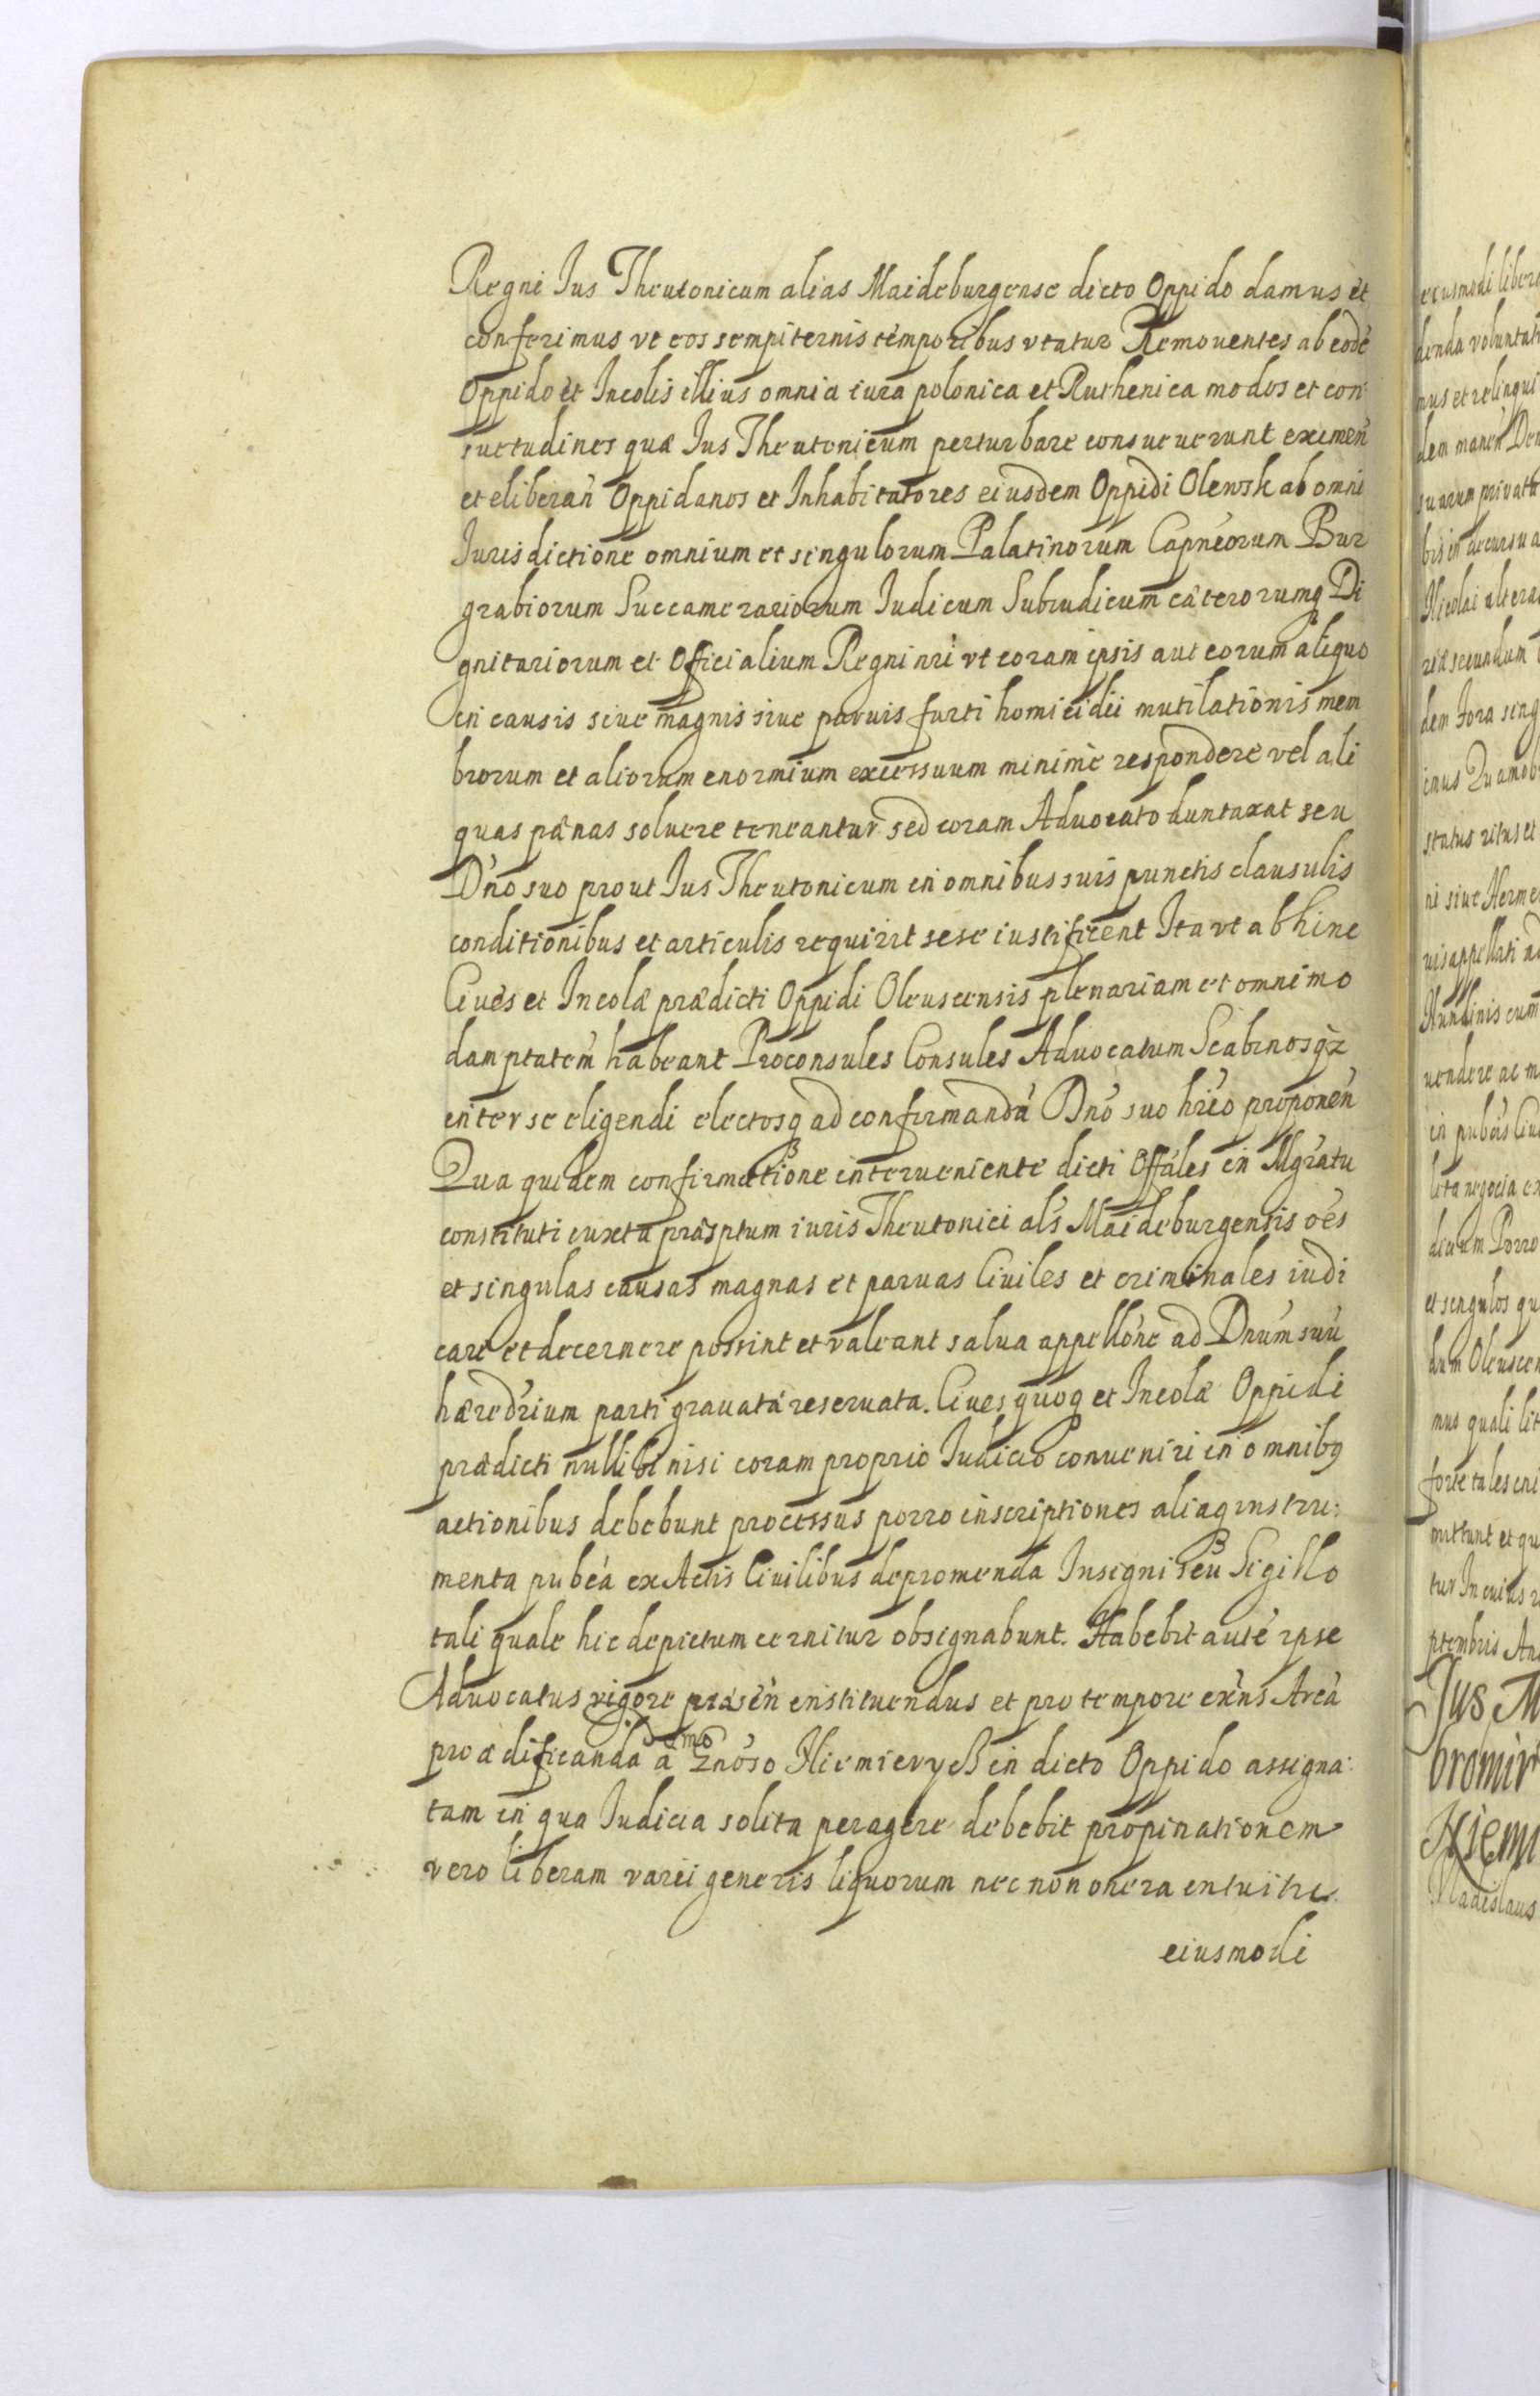 Regni Ius Theutonicum alias Maideburgense dicto Oppido damus et
conferimus vt eos sempiternis temporibus vtatur Remouentes ab eodē
Oppido et Incolis illius omnia iura polonica et Ruthenica modos et con
suetudines quæ Ius Theutonicum perturbare consueuerunt eximeñ
et eliberañ Oppidanos et Inhabitatores eiusdem Oppidi Olewsk ab omni
Iurisdictione omnium et singulorum Palatinorum Capneorum Bur
grabiorum Succamerariorum Iudicum Subiudicum cæterorumq Di
gnitariorum et Officialium Regni nri vt coram ipsis aut eorum aliquo
in causis siue magnis siue paruis furti homicidii mutilationis mem
brorum et aliorum enormium excessuum minimè respondere vel ali
quas pœnas soluere teneantur sed coram Aduocato duntaxat seu
Dño suo prout Ius Theutonicum in omnibus suis punctis clausulis
conditionibus et articulis requirit sese iustificent Ita vt abhinc
Ciues et Incolæ prædicti Oppidi Oleuscensis plenariam et omnimo
dam ptatem habeant Proconsules Consules Aduocatum Scabinosqz
inter se eligendi electosq ad confirmandū Dño suo hrio proponeñ
Qua quidem confirmatione interueniente dicti Offales in Mgratu
constituti iuxta præsptum iuris Theutonici als Maideburgensis oēs
et singulas causas magnas et paruas Ciuiles et criminales iudi
care et decernere possint et valeant salua appellone ad Dnum suū
hæredrium parti grauatæ reseruata. Ciues quoq et Incolæ Oppidi
prædicti nullibi nisi coram proprio Iudicio conueniri in omnibq
actionibus debebunt processus porro inscriptiones aliaq instru:
menta pubca ex Actis Ciuilibus depromenda Insigni seu Sigillo
tali quale hic depictum cernitur obsignabunt. Habebit autē ipse
Aduocatus vigore præseñ instituendus et pro tempore exns Areā
pro ædificanda domo a Znoso Niemierycz in dicto Oppido assigna:
tam in qua Iudicia solita peragere debebit propinationem
vero liberam varii generis liquorum nec non onera intuitu
eiusmodi